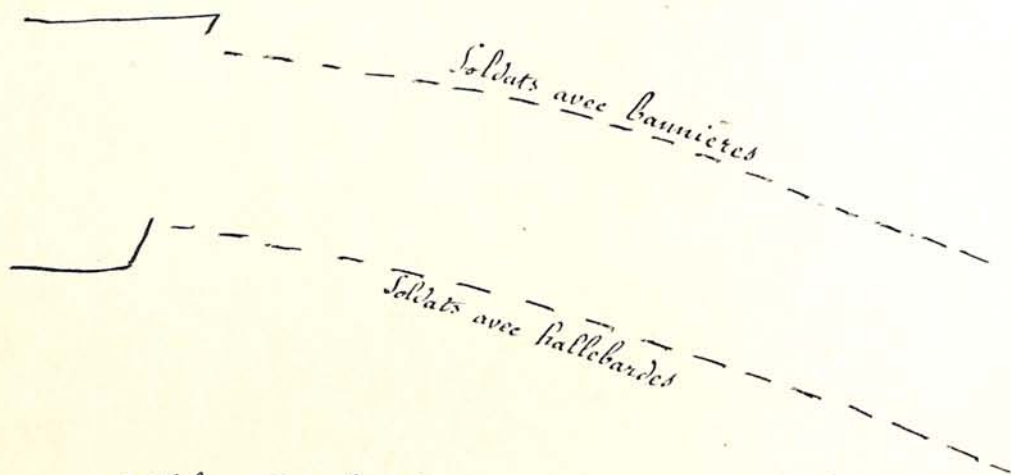 Soldats avec bannières
Soldats avec hallebardes